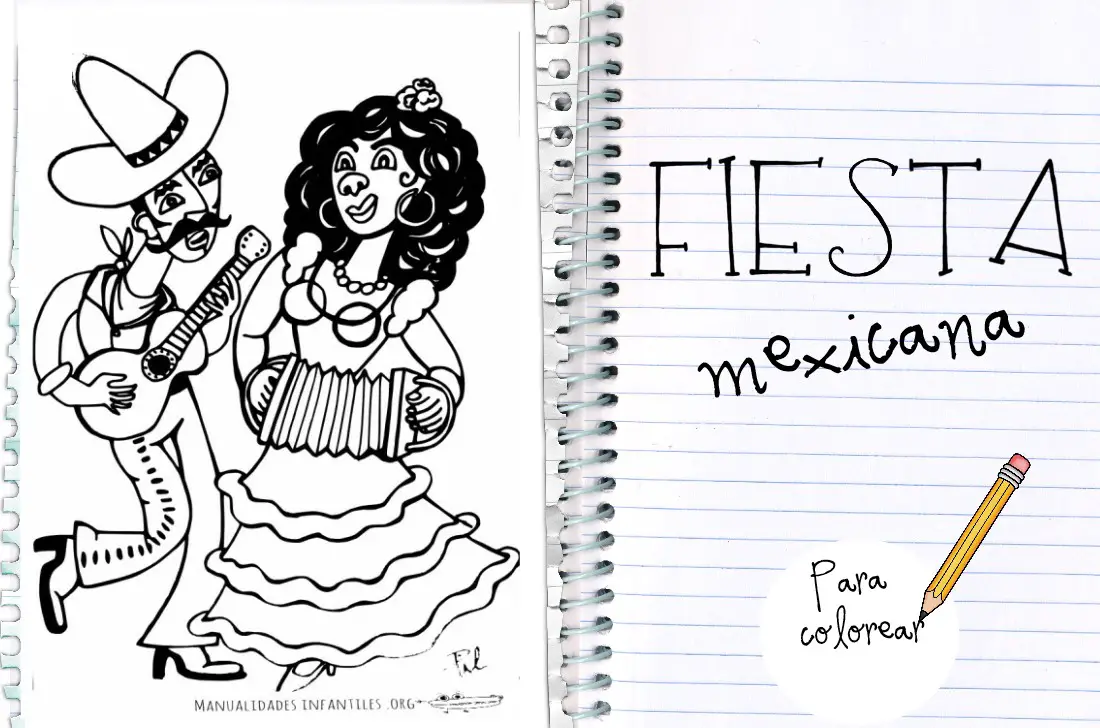 MANUALIDADES INFANTILES .ORG
FIESTA
mexicana
Para
colorear